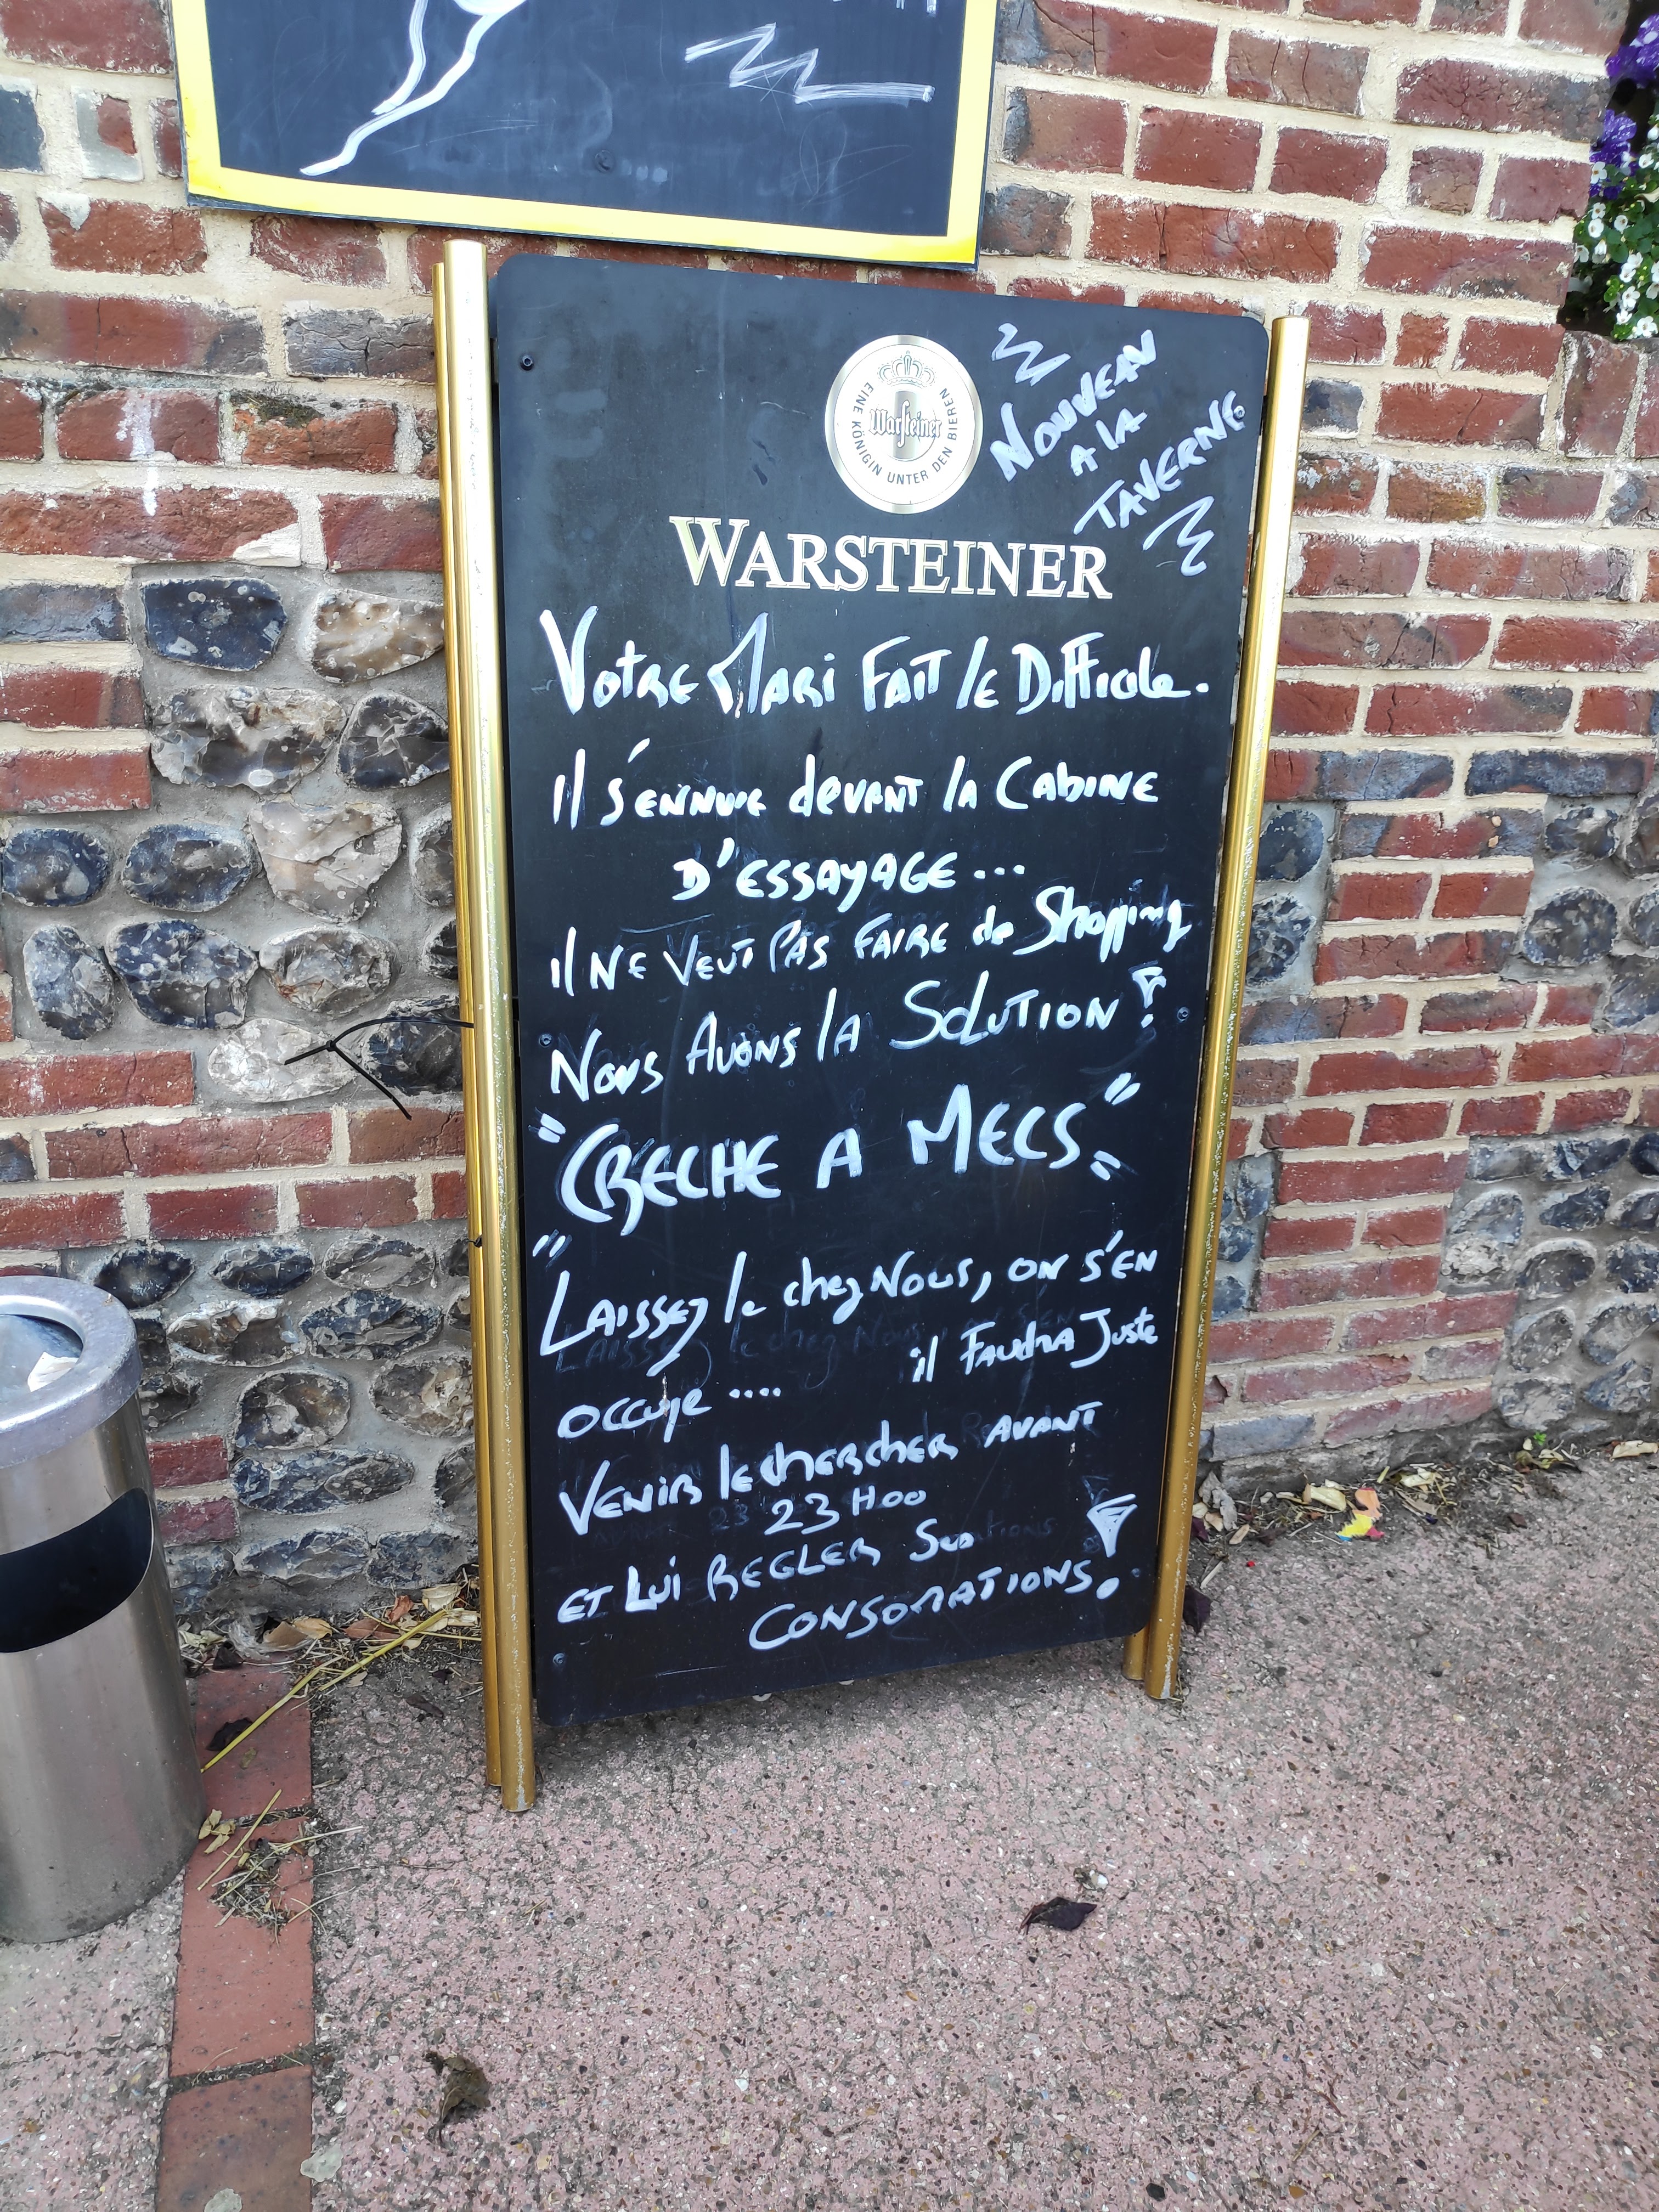 EINE KÖNIGIN UNTER DEN BIEREN
Warsteiner
NOUVEAU
A lA
TAVERNE
WARSTEINER
VOTRE MARI FAIT lE DifficilE.
Il S'ENNUIE dEVANT lA CAbINE
D'ESSAYAGE...
Il NE VEUT PAS FAIRE de Shopping
NOUS AVONS lA SOLUTION !
"CRECHE A MECS"
"LAISSEZ le chez NOUS, ON S'EN
OCCUPE .... il FAUdRA JUSTE
VENIR le chERchER AVANT
23 H00
ET LUI REGLER Ses
CONSOMATIONS !